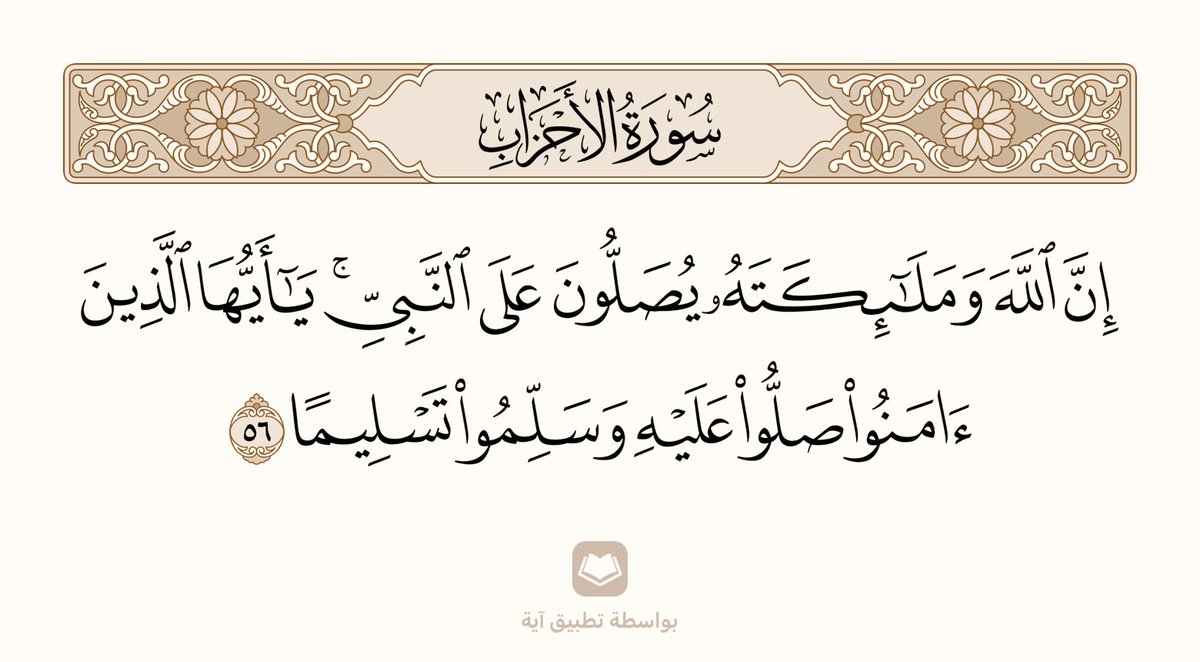 سُورَةُ الأَحْزَابِ
إِنَّ ٱللَّهَ وَمَلَـٰٓئِكَتَهُۥ يُصَلُّونَ عَلَى ٱلنَّبِىِّ ۚ يَـٰٓأَيُّهَا ٱلَّذِينَ
ءَامَنُوا۟ صَلُّوا۟ عَلَيْهِ وَسَلِّمُوا۟ تَسْلِيمًا ٥٦
بواسطة تطبيق آية